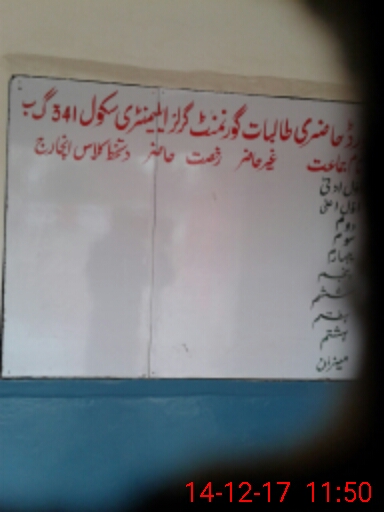 حاضری طالبات گورنمنٹ گرلز ایلیمنٹری سکول 341 گ ب
جماعت غیر حاضر رخصت حاضر دستخط کلاس انچارج
ادنیٰ
اول اعلیٰ
دوم
سوم
چہارم
پنجم
ششم
ہفتم
ہشتم
میزان
14-12-17 11:50